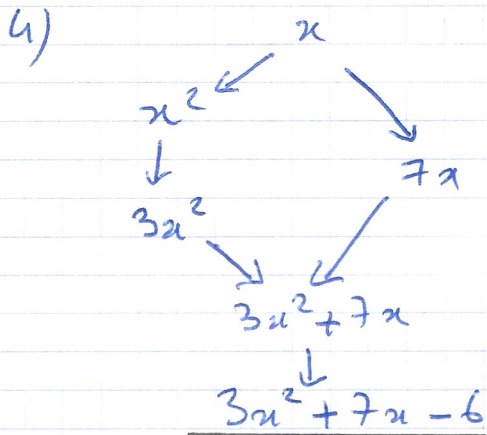 4)
x
x²
7x
3x²
3x² + 7x
3x² + 7x - 6